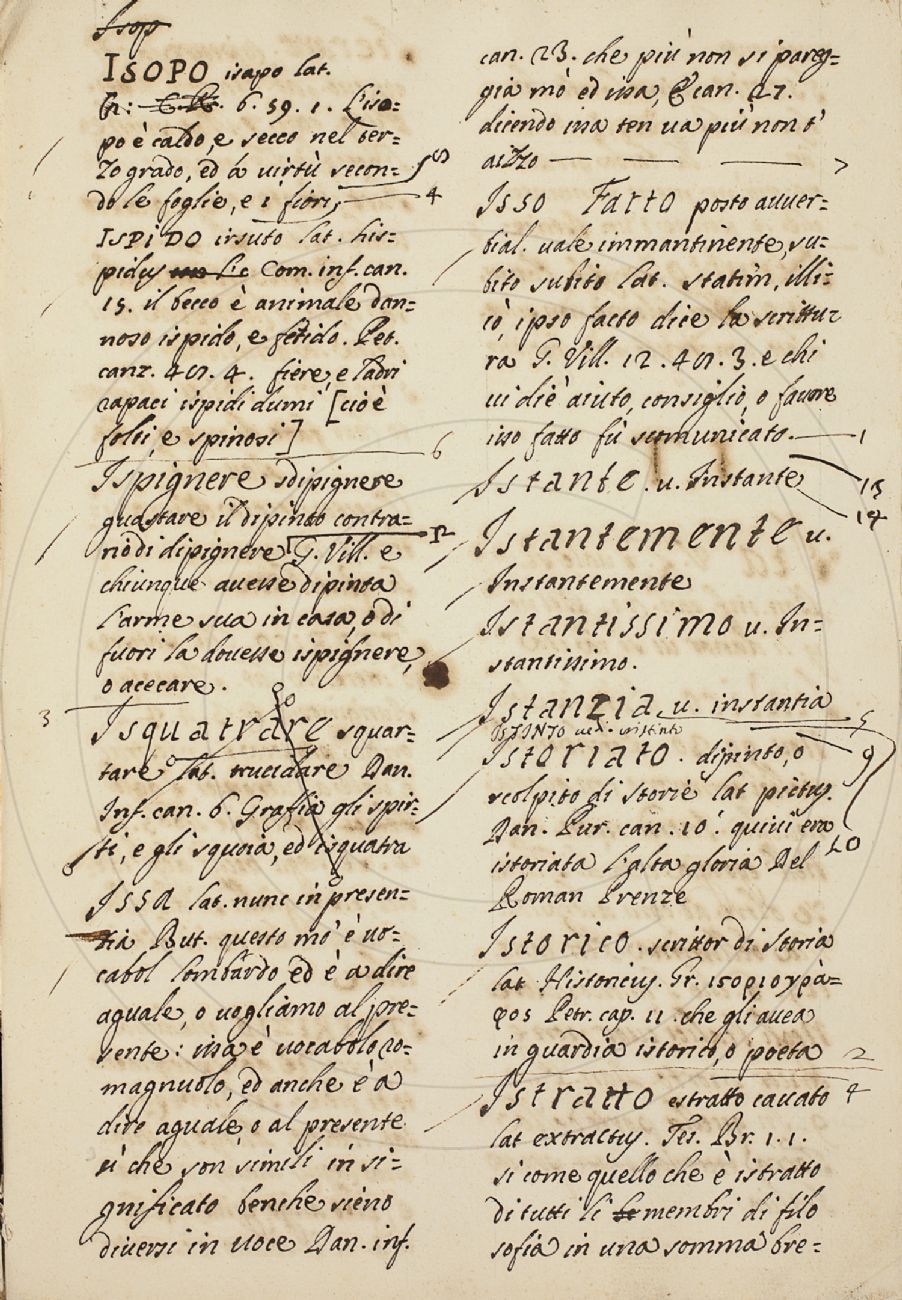 Isop
ISOPO isapo lat.
Cr: C.R. 6. 59. 1. L'iso=
po è caldo, e secco nel ter=
zo grado, ed á virtù secon= 8
do le foglie, e i fiori, 4
ISPIDO irsuto lat. his=
pidus Com. inf. can.
15. il becco è animale dan=
noso ispido, e fetido. Pet.
canz. 49. 4. fiere, e ladri
rapaci ispidi dumi [cioè
folti, e spinosi] 6
Ispignere sdipignere
guastare il dipinto contra=
rio di dipignere G. Vill. e 12
chiunque avesse dipinta
l'arme sua in casa, o di
fuori la dovesse ispignere,
o acecare.
3
Isquatrare squar=
tare lat. trucidare Dan.
Inf. can. 6. Grafia gli spir=
ti, e gli squoia, ed isquatra
Issa lat. nunc in presen=
tia But. questo mo' è vo=
cabol lombardo ed è a dire
aguale, o vogliamo al pre=
sente: issa è vocabolo ro=
magnuolo, ed anche è a
dire aguale o al presente
sì che son simili in si=
gnificato benche sieno
diversi in voce Dan. inf.
can. 23. che più non si pareg=
gia mò ed issa, & can. 27.
dicendo issa ten va più non t'
aizzo — — — 7
Isso Fatto posto avver=
bial. vale immantinente, su=
bito subito lat. statim, illi=
cò, ipso facto dice la scrittu=
ra G. Vill. 12. 49. 3. e chi
vi diè aiuto, consiglio, o favore
isso fatto fù scomunicato. 1
Istante. v. Instante 13
14
Istantemente v.
Instantemente
Istantissimo v. In=
stantissimo.
Istanzia v. instantia 5
ISTINTO ved. instinto
Istoriato. dipinto, o 9
scolpito di storie lat pictus.
Dan. Pur. can. 10. quivi era 10
istoriata l'alta gloria Del
Roman Prenze
Istorico. scrittor di storia
lat Historicus. Gr. ισοριογρά=
φος Petr. cap. 11. che gli avea
in guardia istorico, o poeta 2
Istratto estratto cavato 4
lat extractus. Tes. Br. 1. 1.
si come quello che è istratto
di tutti li membri di filo
sofia in una somma bre=